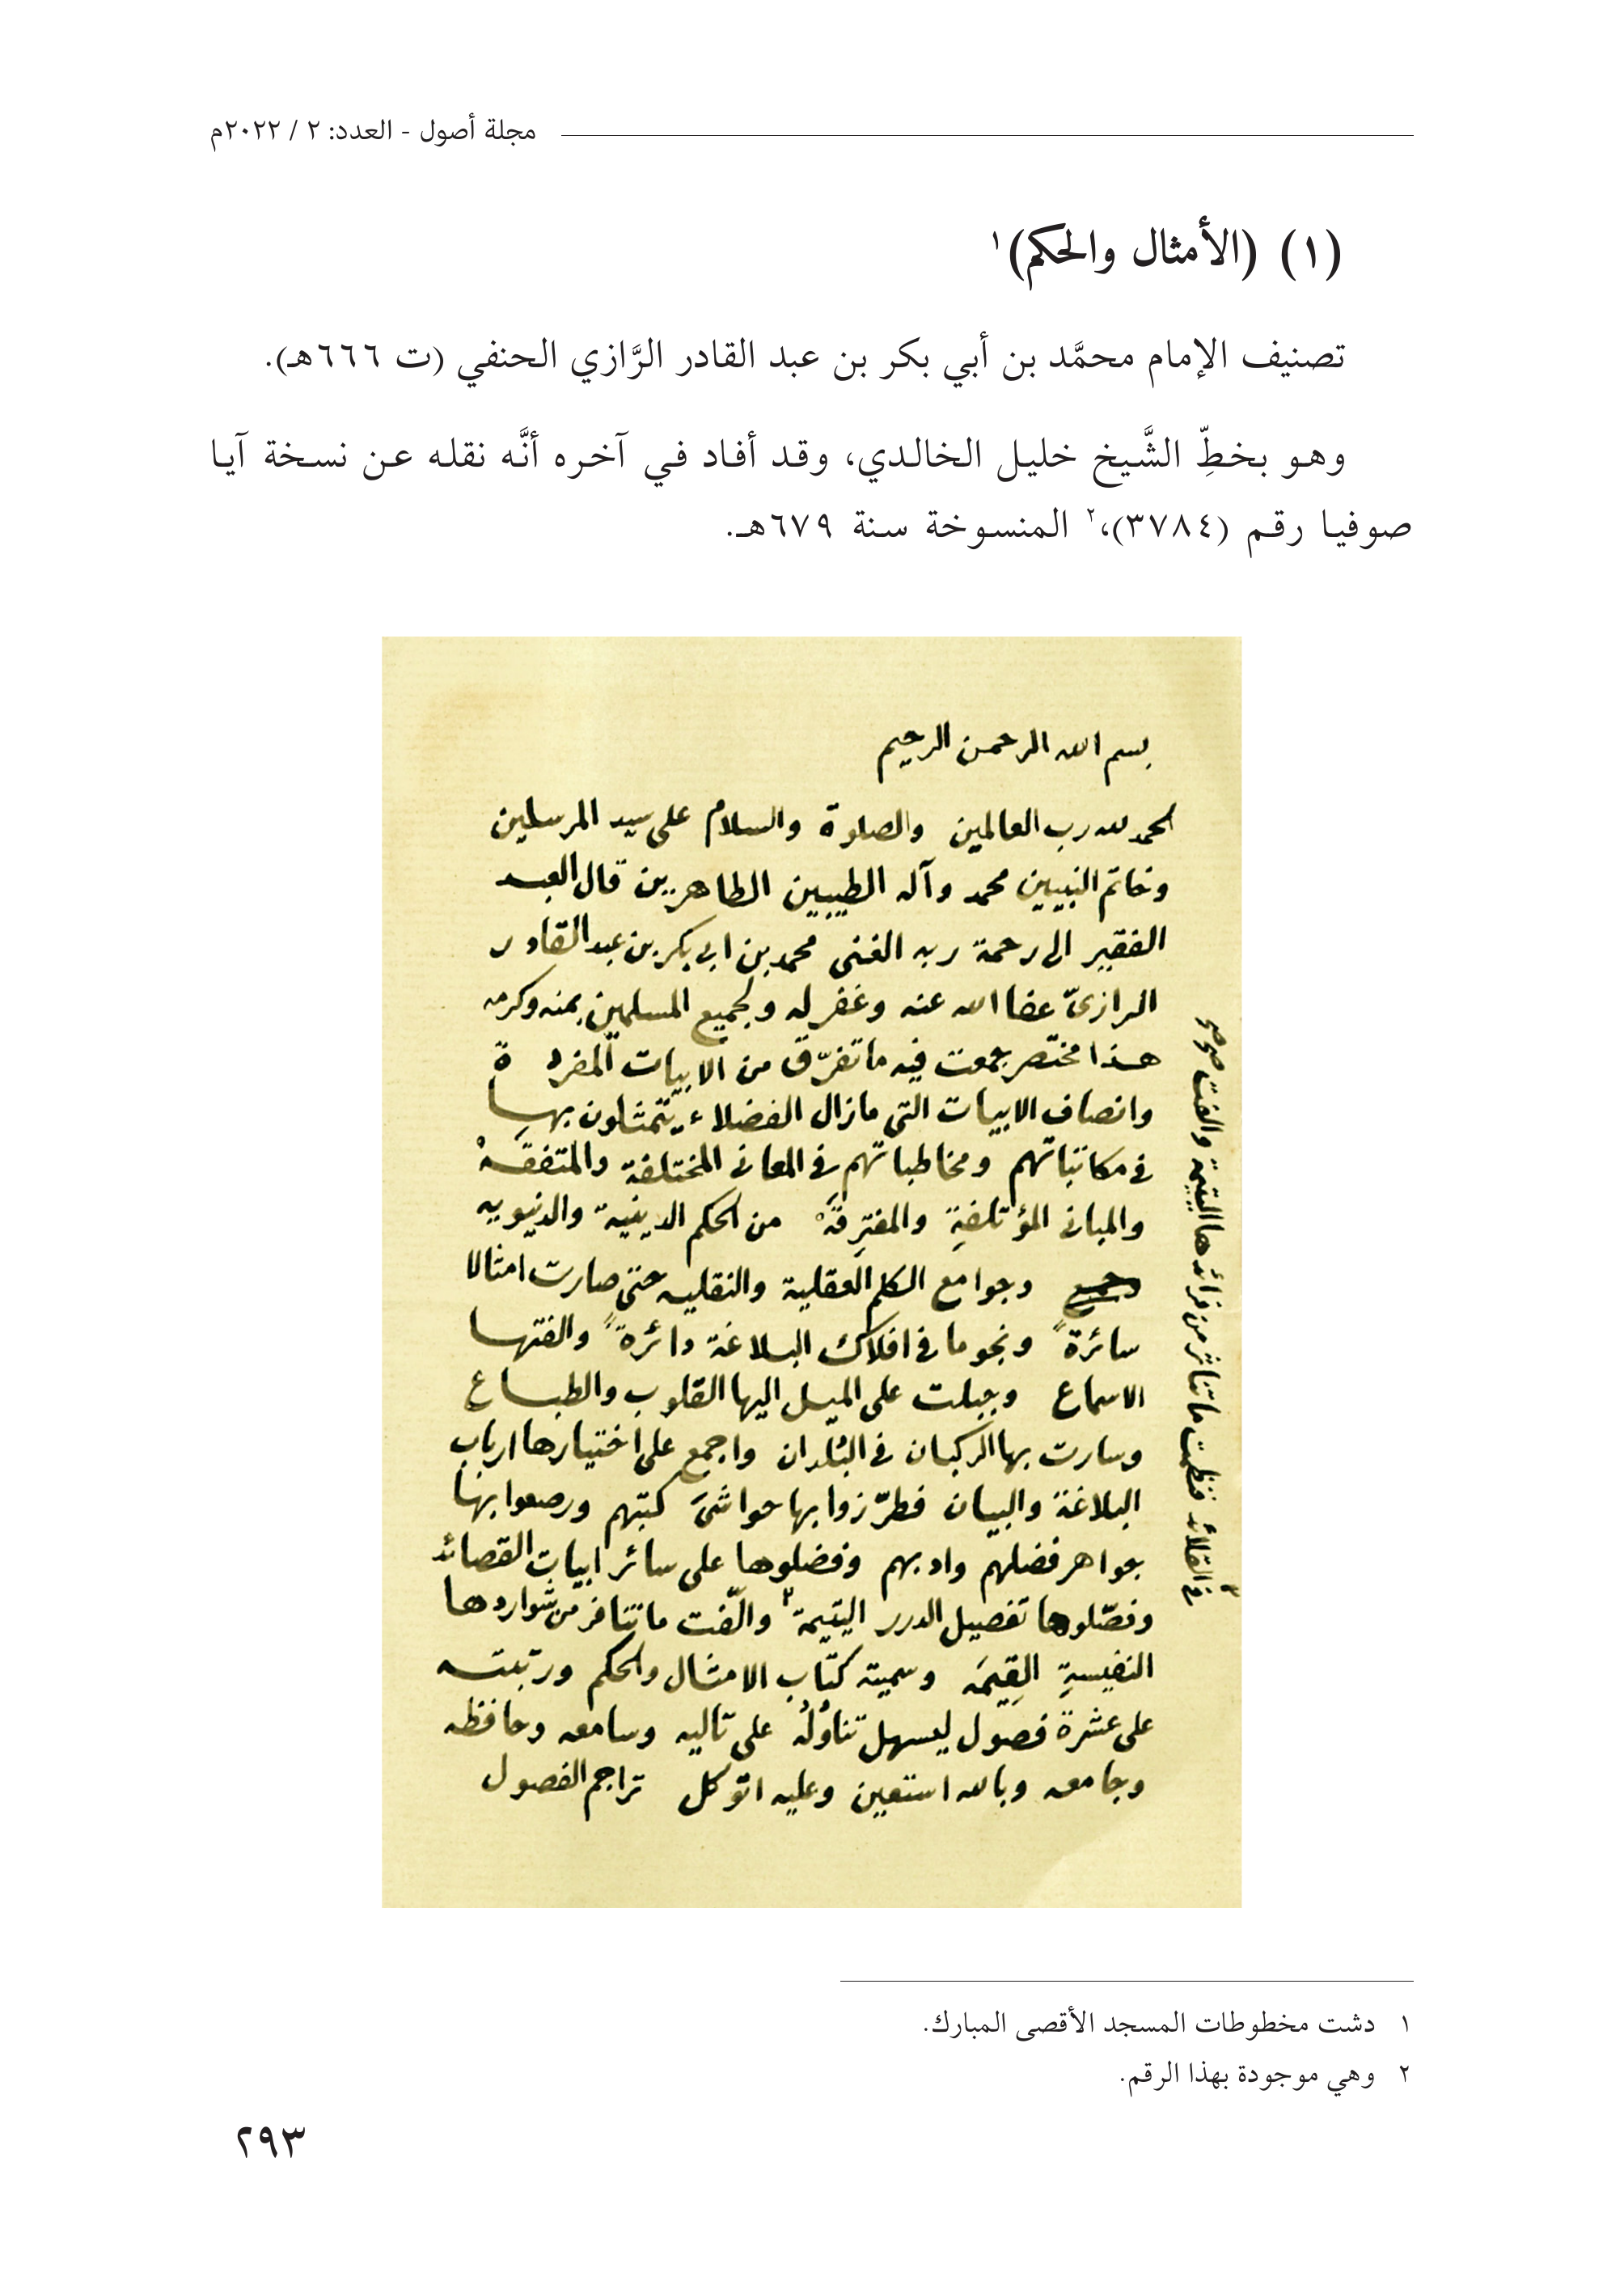 مجلة أصول - العدد: ٢ / ٢٠٢٢م
(١) (الأمثال والحكم)١
تصنيف الإمام محمَّد بن أبي بكر بن عبد القادر الرَّازي الحنفي (ت ٦٦٦هـ).
وهو بخطِّ الشَّيخ خليل الخالدي، وقد أفاد في آخره أنَّه نقله عن نسخة آيا
صوفيا رقم (٣٧٨٤)،٢ المنسوخة سنة ٦٧٩هـ.
بسم الله الرحمن الرحيم
الحمد لله رب العالمين والصلوة والسلام على سيد المرسلين
وخاتم النبيين محمد وآله الطيبين الطاهرين قال العبد
الفقير الى رحمة ربه الغنى محمد بن ابى بكر بن عبد القادر
الرازىّ عفا الله عنه وغفر له ولجميع المسلمين بمنه وكرمه
هذا مختصر جمعت فيه ما تفرّق من الابيات المفردة
وانصاف الابيات التى مازال الفضلاء يتمثلون بها
فى مكاتباتهم ومخاطباتهم فى المعانى المختلفة والمتفقة
والمبانى المؤتلفةِ والمفترِقَة من الحكم الدينية والدنيويه
وجوامع الكلم العقلية والنقليه حتى صارت امثالا
سائرةً ونجوما فى افلاك البلاغة دائرةً والفتها
الاسماع وجبلت على الميل اليها القلوب والطباع
وسارت بها الركبان فى البُلدان واجمع على اختيارها ارباب
البلاغة والبيان فطرّزوا بها حواشىَ كتبهم ورصعوا بها
جواهر فضلهم وادبهم وفضلوها على سائر ابيات القصائد
وفصّلوها تفصيل الدرر اليتيمة٢ والّفت ما تنافر من شواردها
النفيسةِ القِيمَه وسميته كتاب الامثال والحكم ورتبته
على عشرة فصول ليسهل تناوُلُه على تاليه وسامعه وحافظه
وجامعه وبالله استعين وعليه اتوكل تراجم الفصول
٢ فى القلائد فنظمت ما تناثر من فرائدها اليتيمة والفت صح
١ دشت مخطوطات المسجد الأقصى المبارك.
٢ وهي موجودة بهذا الرقم.
٢٩٣